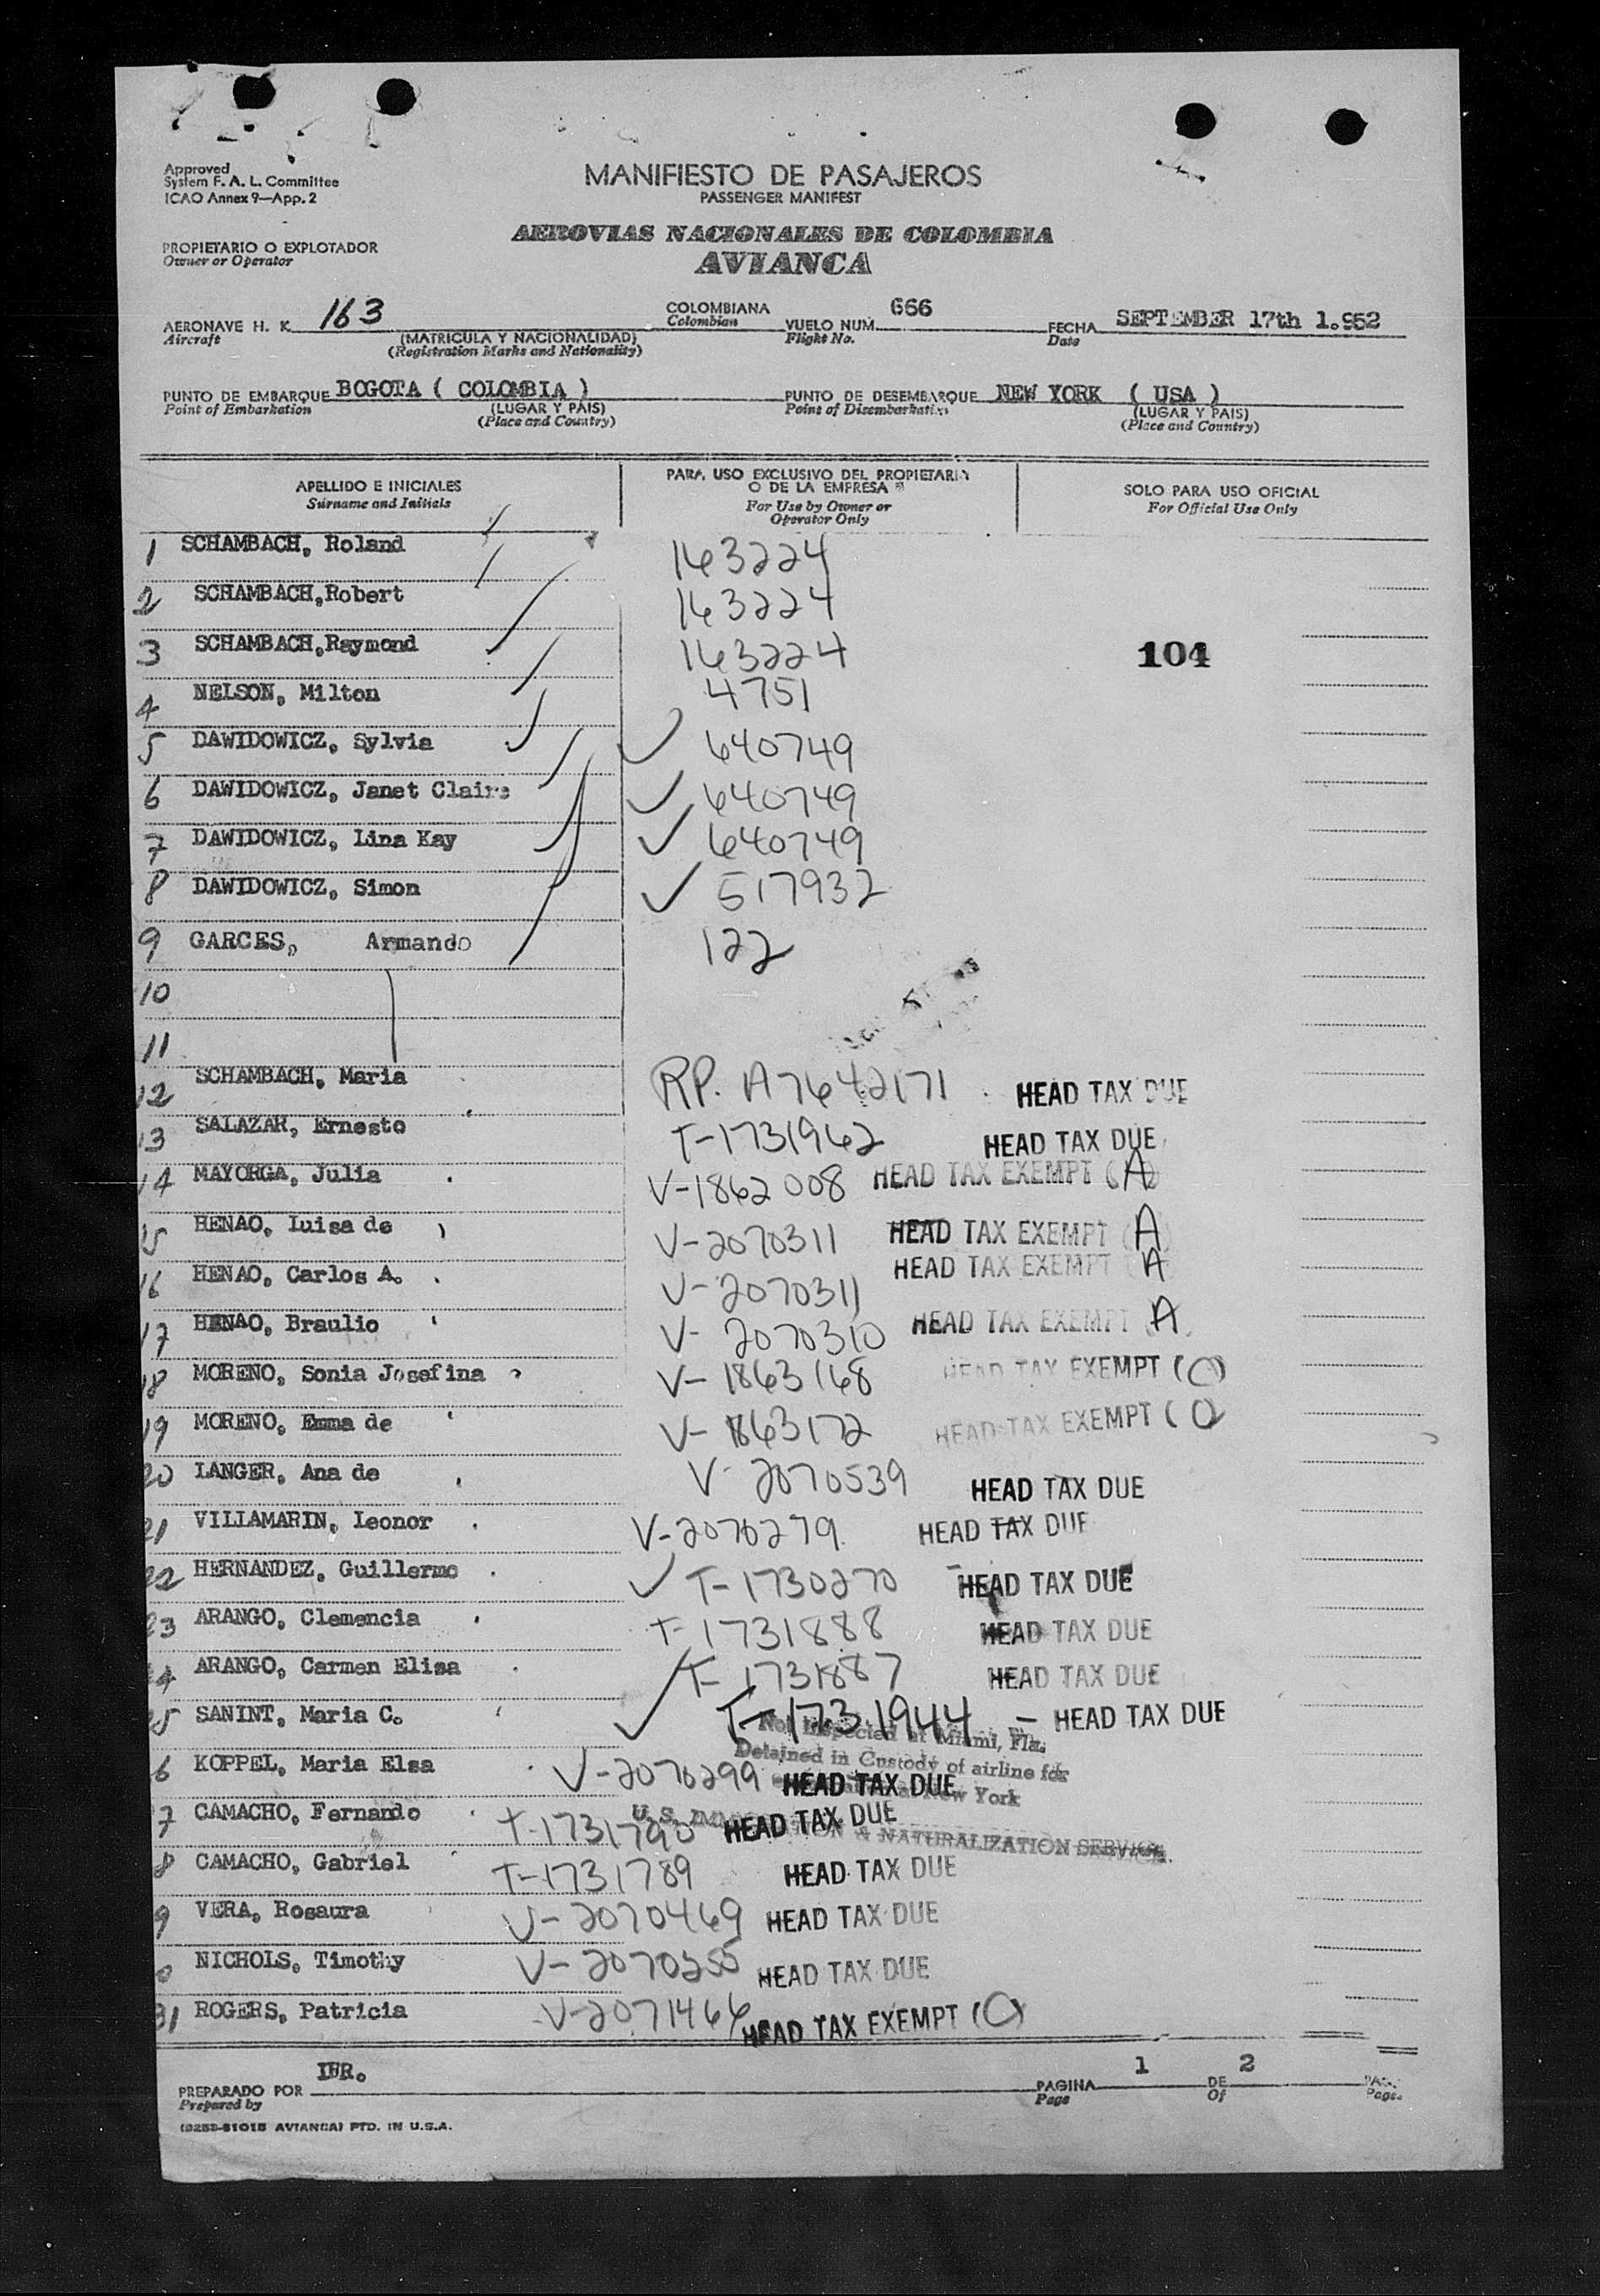 Approved
System F. A. L. Committee
ICAO Annex 9—App. 2
MANIFIESTO DE PASAJEROS
PASSENGER MANIFEST
PROPIETARIO O EXPLOTADOR
Owner or Operator
AEROVIAS NACIONALES DE COLOMBIA
AVIANCA
AERONAVE H. K. 163 COLOMBIANA VUELO NUM. 666 FECHA SEPTEMBER 17th 1.952
Aircraft (MATRICULA Y NACIONALIDAD) Colombian Flight No. Date
(Registration Marks and Nationality)
PUNTO DE EMBARQUE BOGOTA ( COLOMBIA ) PUNTO DE DESEMBARQUE NEW YORK ( USA )
Point of Embarkation (LUGAR Y PAIS) Point of Disembarkation (LUGAR Y PAIS)
(Place and Country) (Place and Country)
APELLIDO E INICIALES
Surname and Initials
PARA USO EXCLUSIVO DEL PROPIETARIO
O DE LA EMPRESA
For Use by Owner or
Operator Only
SOLO PARA USO OFICIAL
For Official Use Only
1 SCHAMBACH, Roland 163224
2 SCHAMBACH,Robert 163224
3 SCHAMBACH,Raymond 163224 104
4 NELSON, Milton 4751
5 DAWIDOWICZ, Sylvia ✓ 640749
6 DAWIDOWICZ, Janet Claire ✓ 640749
7 DAWIDOWICZ, Lina Kay ✓ 640749
8 DAWIDOWICZ, Simon ✓ 517932
9 GARCES, Armando 122
10
11
12 SCHAMBACH, Maria RP. A7642171 HEAD TAX DUE
13 SALAZAR, Ernesto T-1731962 HEAD TAX DUE
14 MAYORGA, Julia V-1862008 HEAD TAX EXEMPT (A)
15 HENAO, Luisa de V-2070311 HEAD TAX EXEMPT (A
16 HENAO, Carlos A. V-2070311 HEAD TAX EXEMPT (A
17 HENAO, Braulio V-2070310 HEAD TAX EXEMPT (A)
18 MORENO, Sonia Josefina V-1863168 HEAD TAX EXEMPT (O)
19 MORENO, Emma de V-1863172 HEAD TAX EXEMPT (O
20 LANGER, Ana de V-2070539 HEAD TAX DUE
21 VILLAMARIN, Leonor V-2070279 HEAD TAX DUE
22 HERNANDEZ, Guillermo ✓ T-1730270 HEAD TAX DUE
23 ARANGO, Clemencia T-1731888 HEAD TAX DUE
24 ARANGO, Carmen Elisa T-1731887 HEAD TAX DUE
25 SANINT, Maria C. ✓ T-1731944 - HEAD TAX DUE
Not Inspected at Miami, Fla.
Detained in Custody of airline for
at New York
U. S. IMMIGRATION & NATURALIZATION SERVICE.
6 KOPPEL, Maria Elsa V-2070299 HEAD TAX DUE
7 CAMACHO, Fernando T-1731790 HEAD TAX DUE
8 CAMACHO, Gabriel T-1731789 HEAD TAX DUE
9 VERA, Rosaura V-2070469 HEAD TAX DUE
0 NICHOLS, Timothy V-2070255 HEAD TAX DUE
31 ROGERS, Patricia V-2071466 HEAD TAX EXEMPT (O)
PREPARADO POR IHR. PAGINA 1 DE 2 PAG.
Prepared by Page Of Pages
AVIANCA) PTD. IN U.S.A.